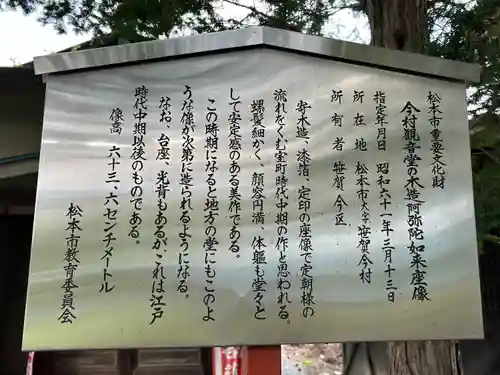 松本市重要文化財
今村観音堂の木造阿弥陀如来座像
指定年月日　昭和六十一年三月十三日
所在地　松本市大字笹賀今村
所有者　笹賀今区
寄木造、漆箔、定印の座像で定朝様の
流れをくむ室町時代中期の作と思われる。
螺髪細かく、顔容円満、体躯も堂々と
して安定感のある美作である。
この時期になると地方の堂にもこのよ
うな像が次第に造られるようになる。
なお、台座、光背もあるがこれは江戸
時代中期以後のものである。
像高　六十三、六センチメートル
松本市教育委員会